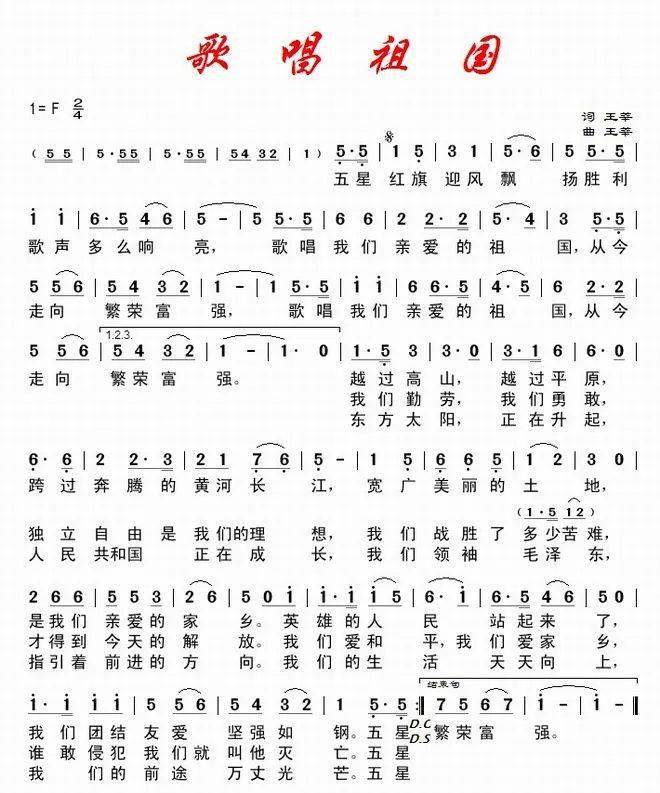 歌唱祖国
1= F 2/4
词 王莘
曲 王莘
( 5 5 | 5·55 | 5·55 | 54 32 | 1 ) | 5·5 | 1 5 | 3 1 | 5·6 | 5 5·5 |
五星 红旗 迎风 飘 扬胜利
i i | 6·5 4 6 | 5 - | 5 5·5 | 6 6 | 2 2·2 | 5·4 | 3 5·5 |
歌声 多么响 亮， 歌唱 我们 亲爱的 祖 国，从今
5 5 6 | 5 4 3 2 | 1 - | 1 5·5 | i i | 6 6·5 | 4·5 | 6 2·2 |
走向 繁荣富 强， 歌唱 我们 亲爱的 祖 国，从今
1.2.3.
5 5 6 | 5 4 3 2 | 1 - | 1· 0 | 1·5 | 3·0 | 3·1 6 | 6·0 |
走向 繁荣富 强。 越过高山， 越过平原，
我们勤劳， 我们勇敢，
东方太阳， 正在升起，
6·6 | 2 2·3 | 2 1 7 6 | 5 - | 1 5 | 6 6·5 | 1 2 | 3 0 |
跨过 奔腾的 黄河长 江， 宽广 美丽的 土 地，
(1·5 12)
独立 自由是 我们的理 想， 我们 战胜了 多少苦难，
人民 共和国 正在成 长， 我们 领袖 毛泽东，
2 6 6 | 5 5 3 | 2 6 | 5 0 i | i·i | i 5 | 6· i | 4 6 | 5 0 |
是我们 亲爱的 家 乡。英雄的人 民 站起来了，
才得到 今天的 解 放。我们爱和 平，我们 爱家 乡，
指引着 前进的 方 向。我们的生 活 天天向 上，
结束句
i· i | 6 5 5 2 | 5 6 5 | 5 4 3 2 | 1 5·5 :| 7 5 6 7 | i - | i· 0 |
我们 团结友爱 坚强如 钢。五星 D.C 繁荣富 强。
谁敢 侵犯我们就 叫他灭 亡。五星 D.S
我 们的前途 万丈光 芒。五星